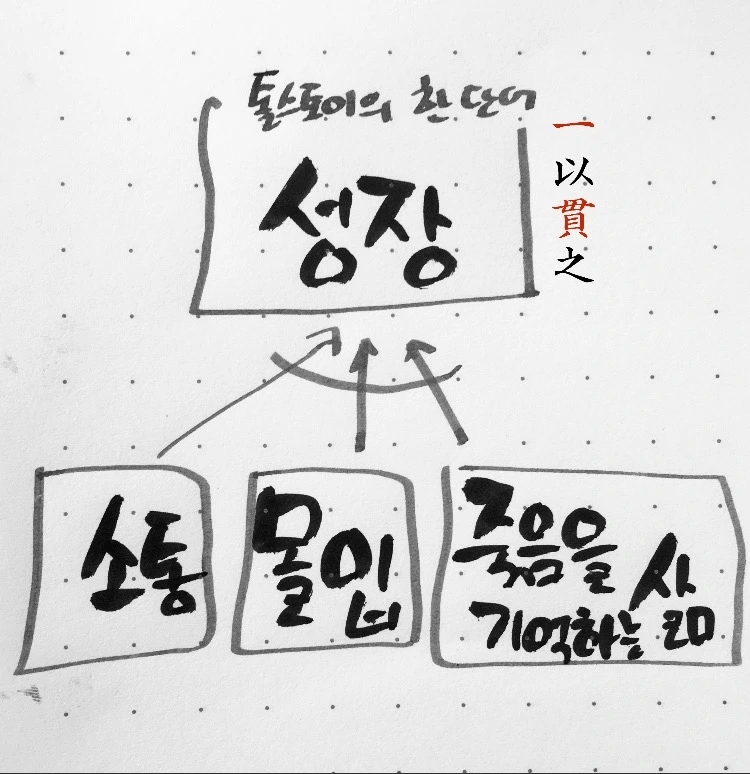 톨스토이의 한 단어
성장
一以貫之
소통
몰입
죽음을
기억하는 삶